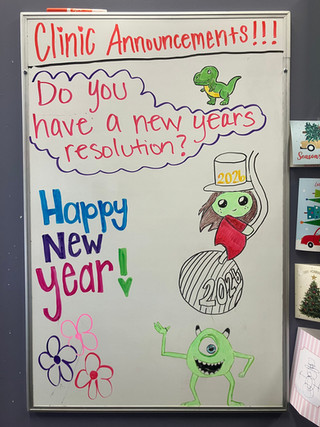 Clinic Announcements!!!
Do you
have a new years
resolution?
2026
Happy
New
year!
2025